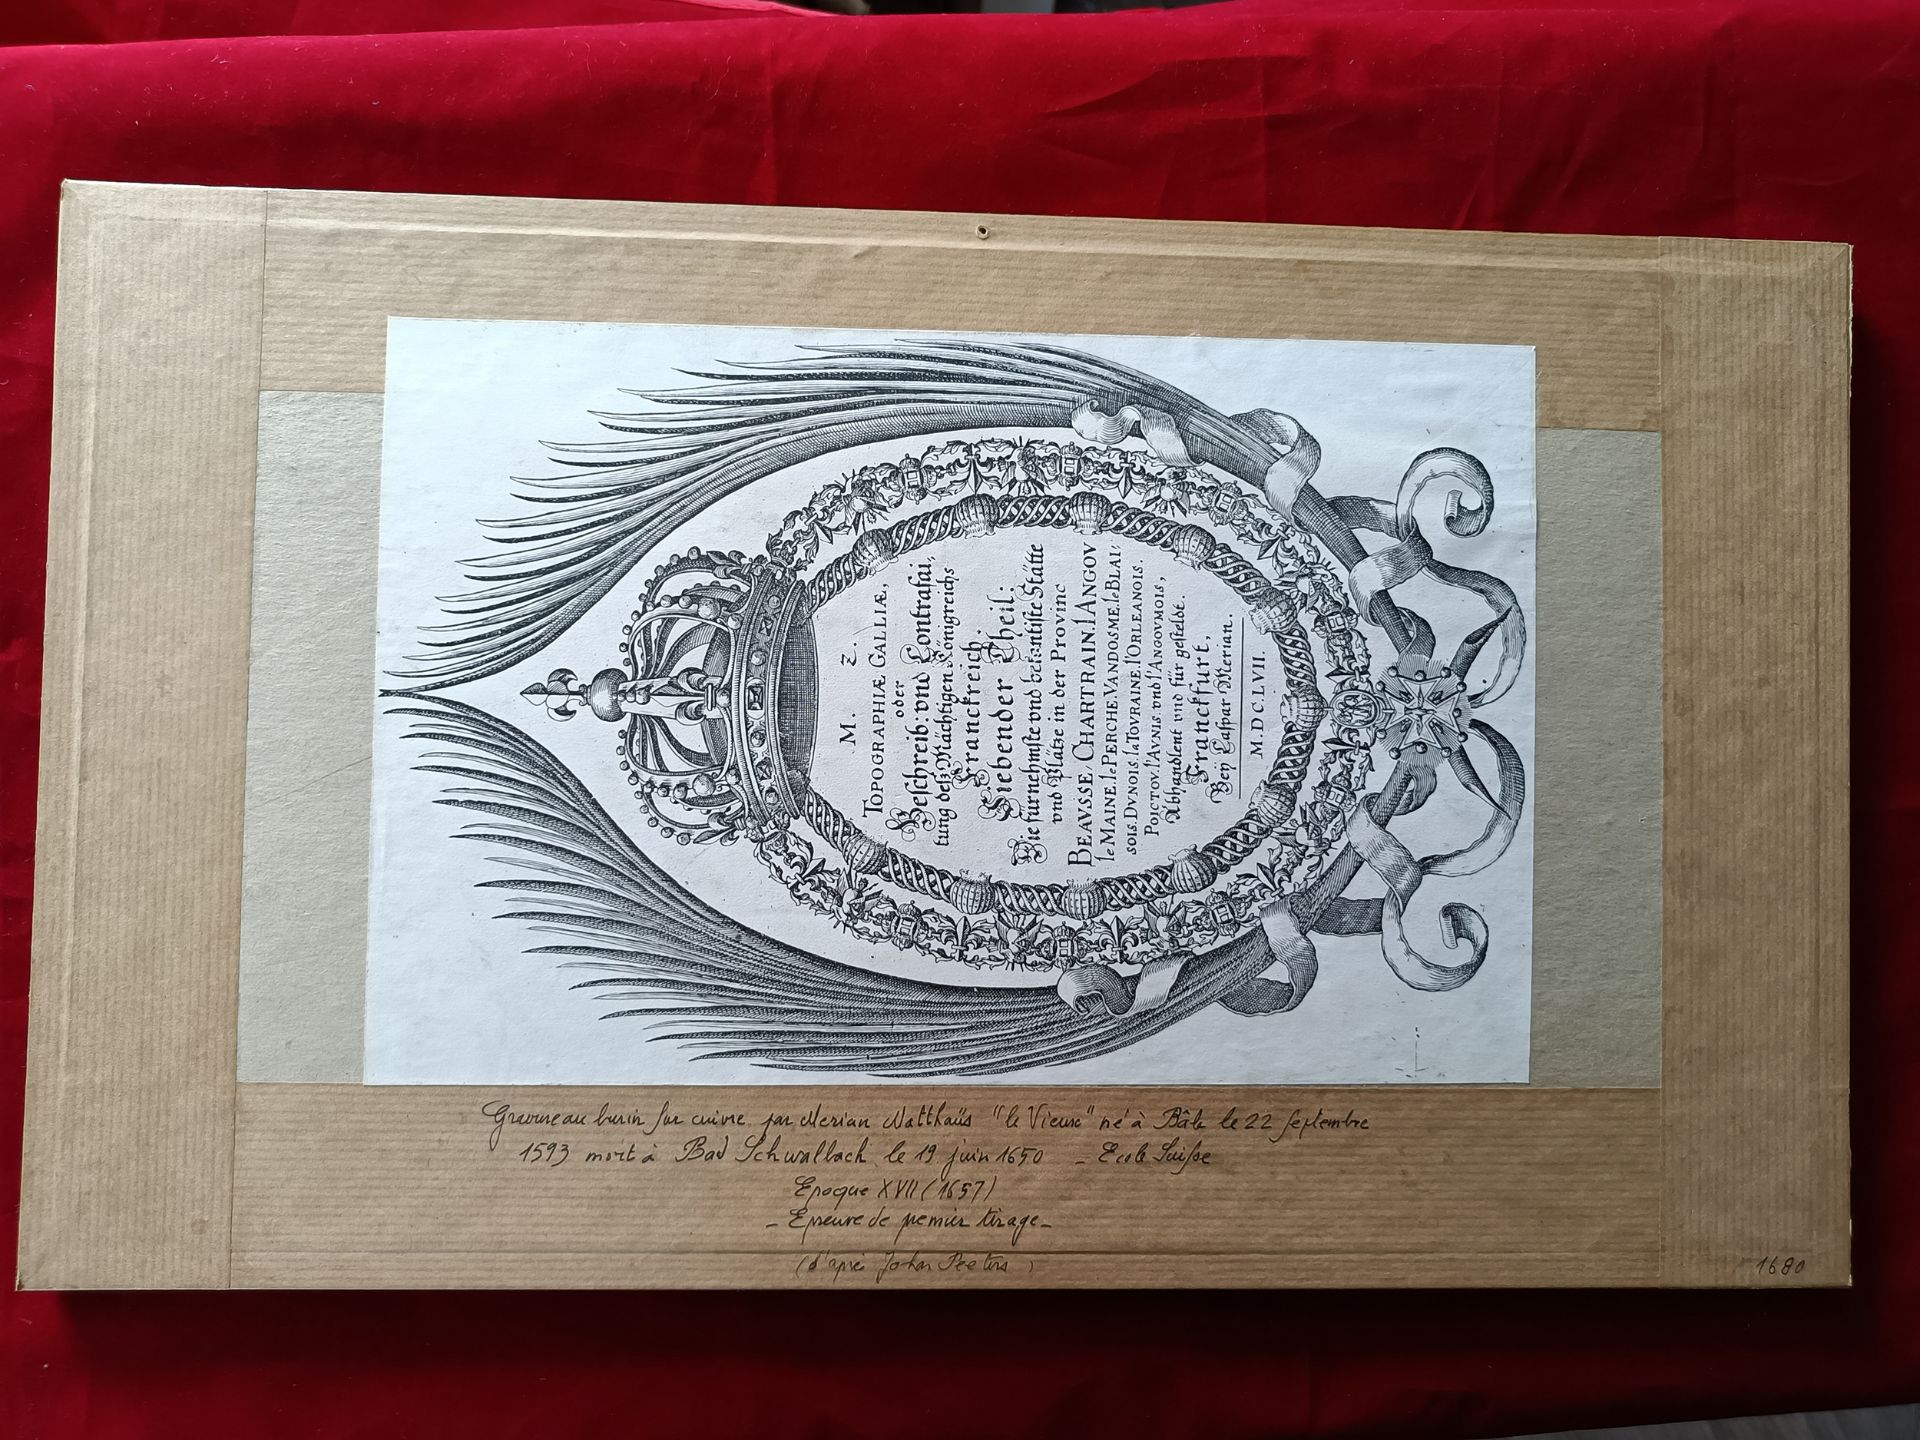 M. Z.
TOPOGRAPHIÆ GALLIÆ,
oder
Beschreib: vnd Contrafai,
tung deß Mächtigen Königreichs
Franckreich.
Siebender Theil:
Die fürnehmste vnd bekantiste Stätte
vnd Plätze in der Provinc
BEAVSSE CHARTRAIN, l'ANGOV
le MAINE, le PERCHE, VANDOSME, le BLAI:
SOIS, DVNOIS, la TOVRAINE, l'ORLEANOIS.
POICTOV, l'AVNIS, vnd l'ANGOVMOIS,
Abhandlent vnd für gesteldt.
Franckfurt,
Beÿ Caspar Merian.
M.DC.LVII.
Gravure au burin sur cuivre par Merian Matthaüs "le Vieux" né à Bâle le 22 Septembre
1593 mort à Bad Schwalbach le 19 juin 1650 - Ecole Suisse
Epoque XVII (1657)
- Epreuve de premier tirage -
(d'après Johan Peeters)
1680